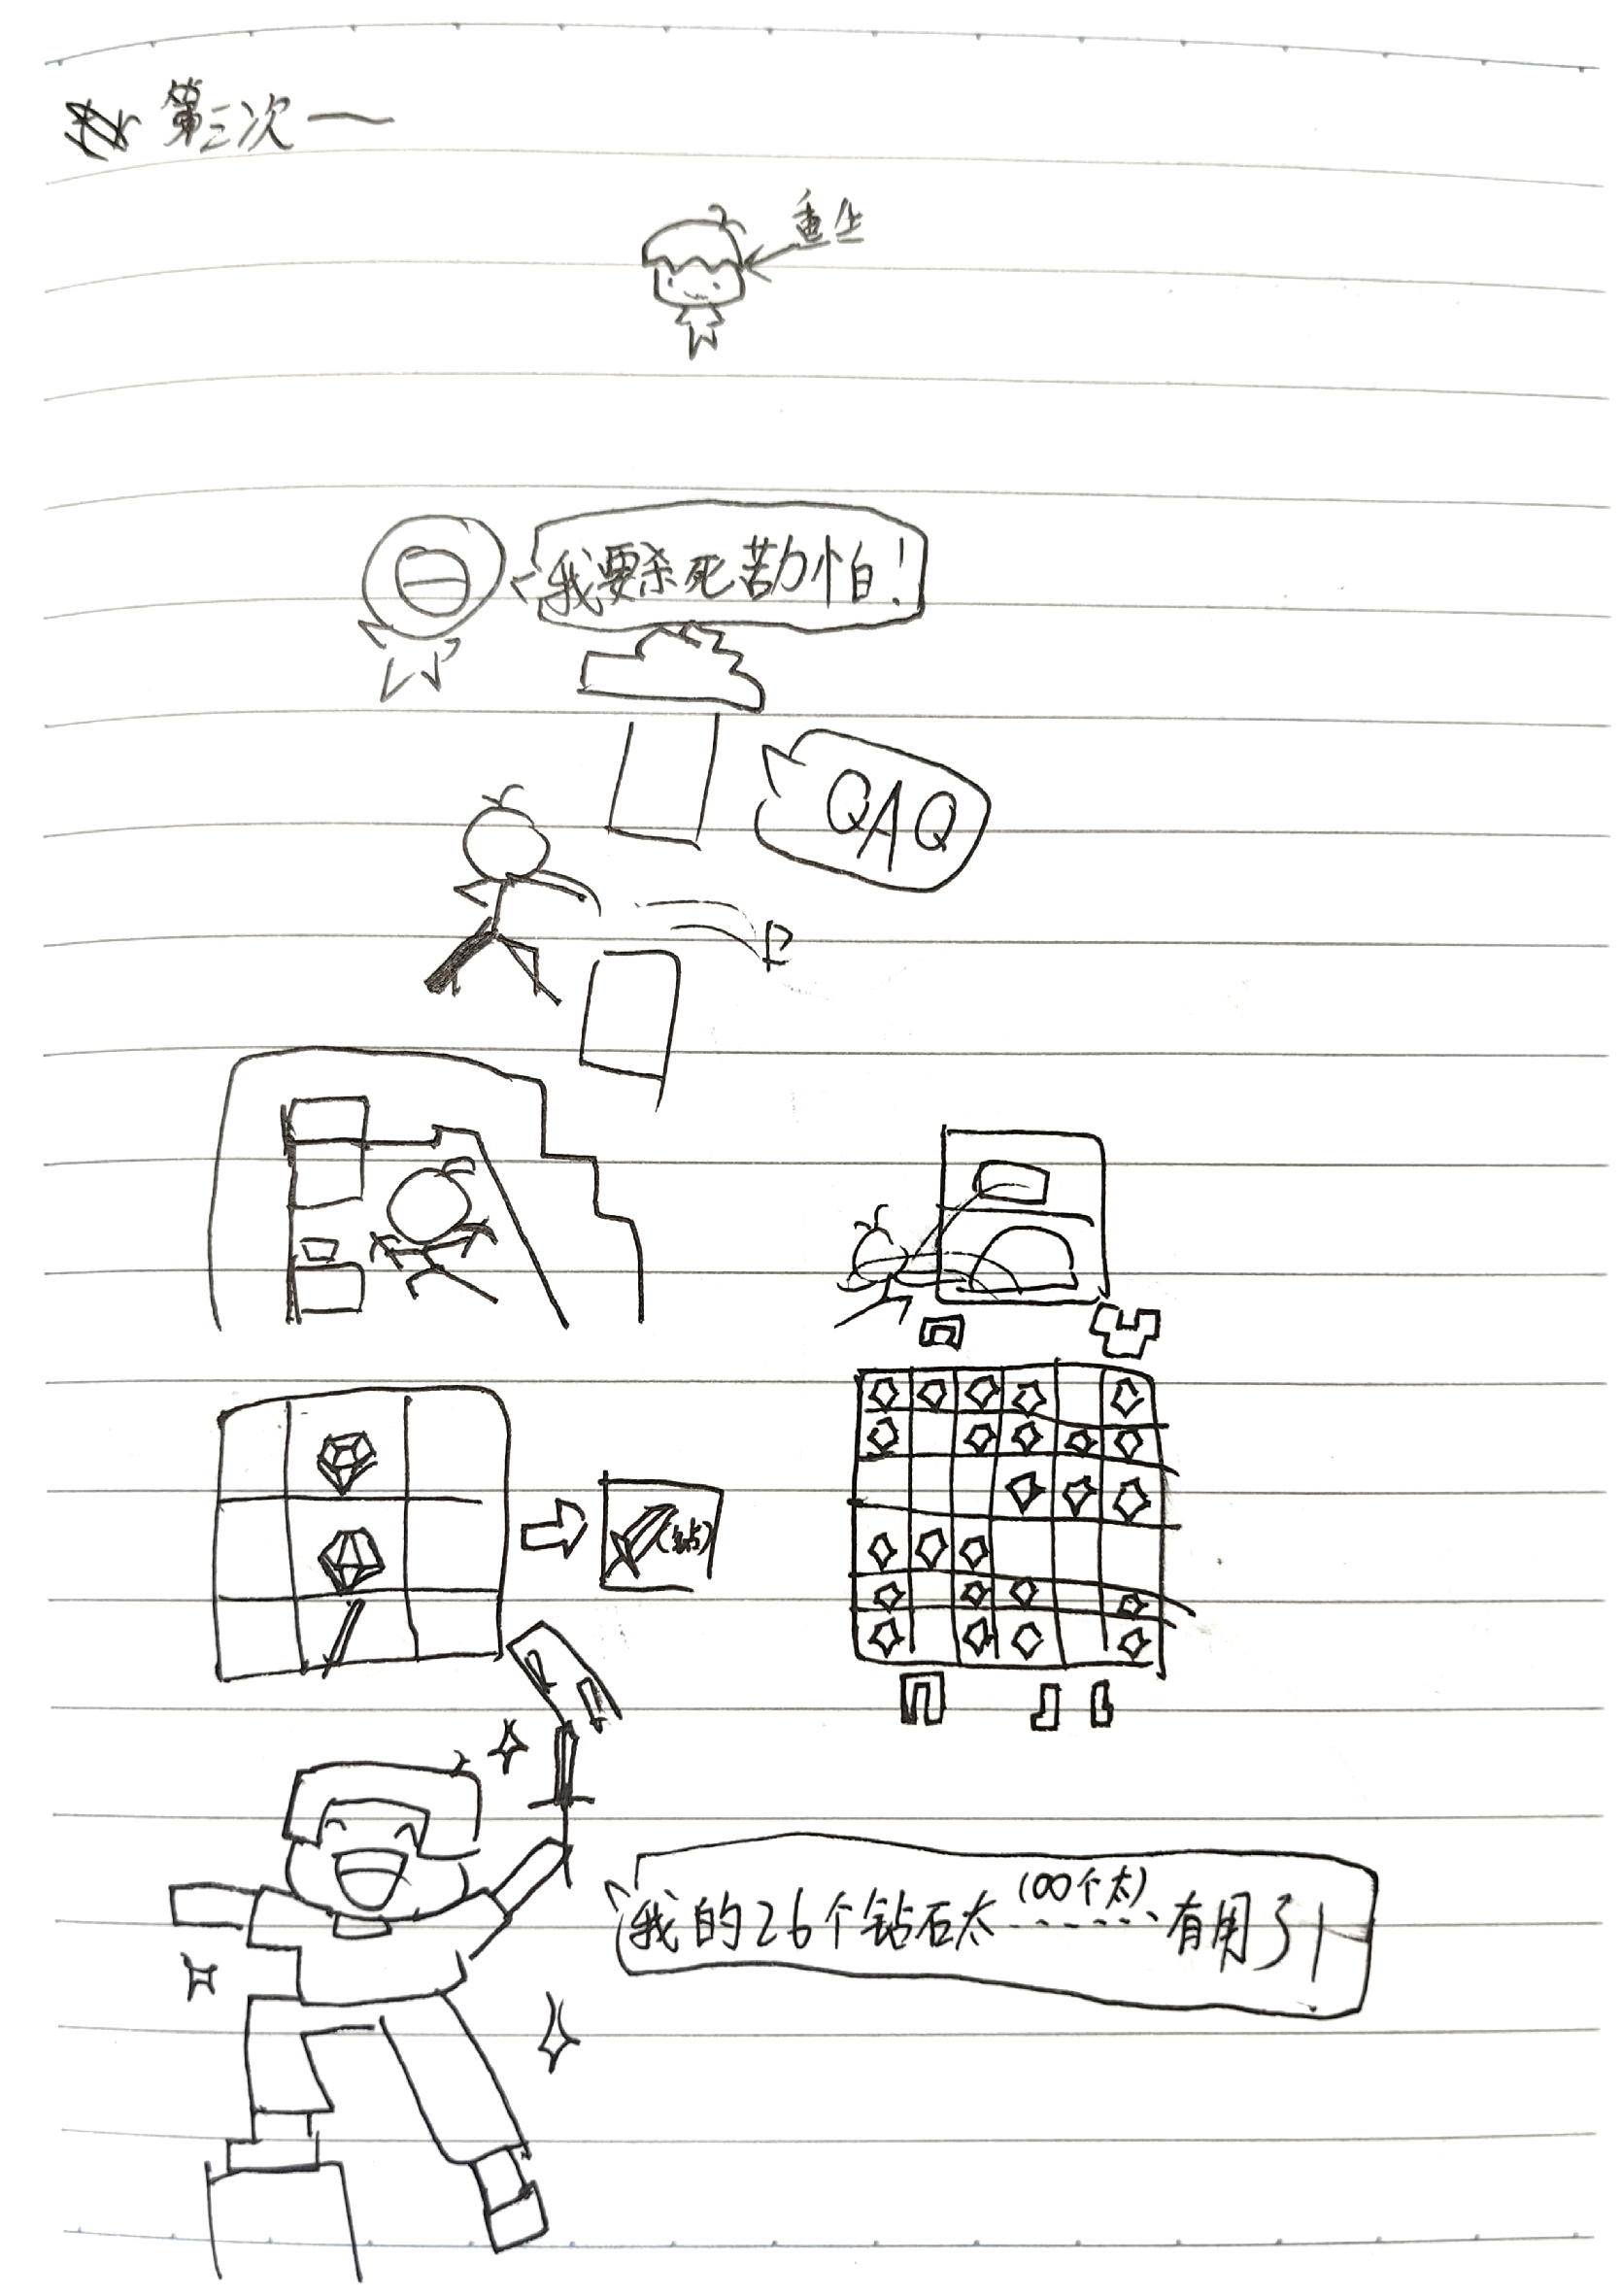 第三次一
重生
我要杀死苦力怕!
QAQ
(钻)
(00个太)
我的26个钻石太......有用了!